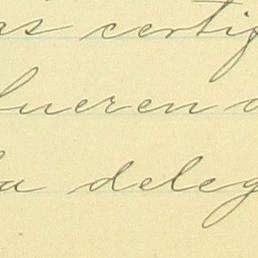 as certif
fueren a
la deleg